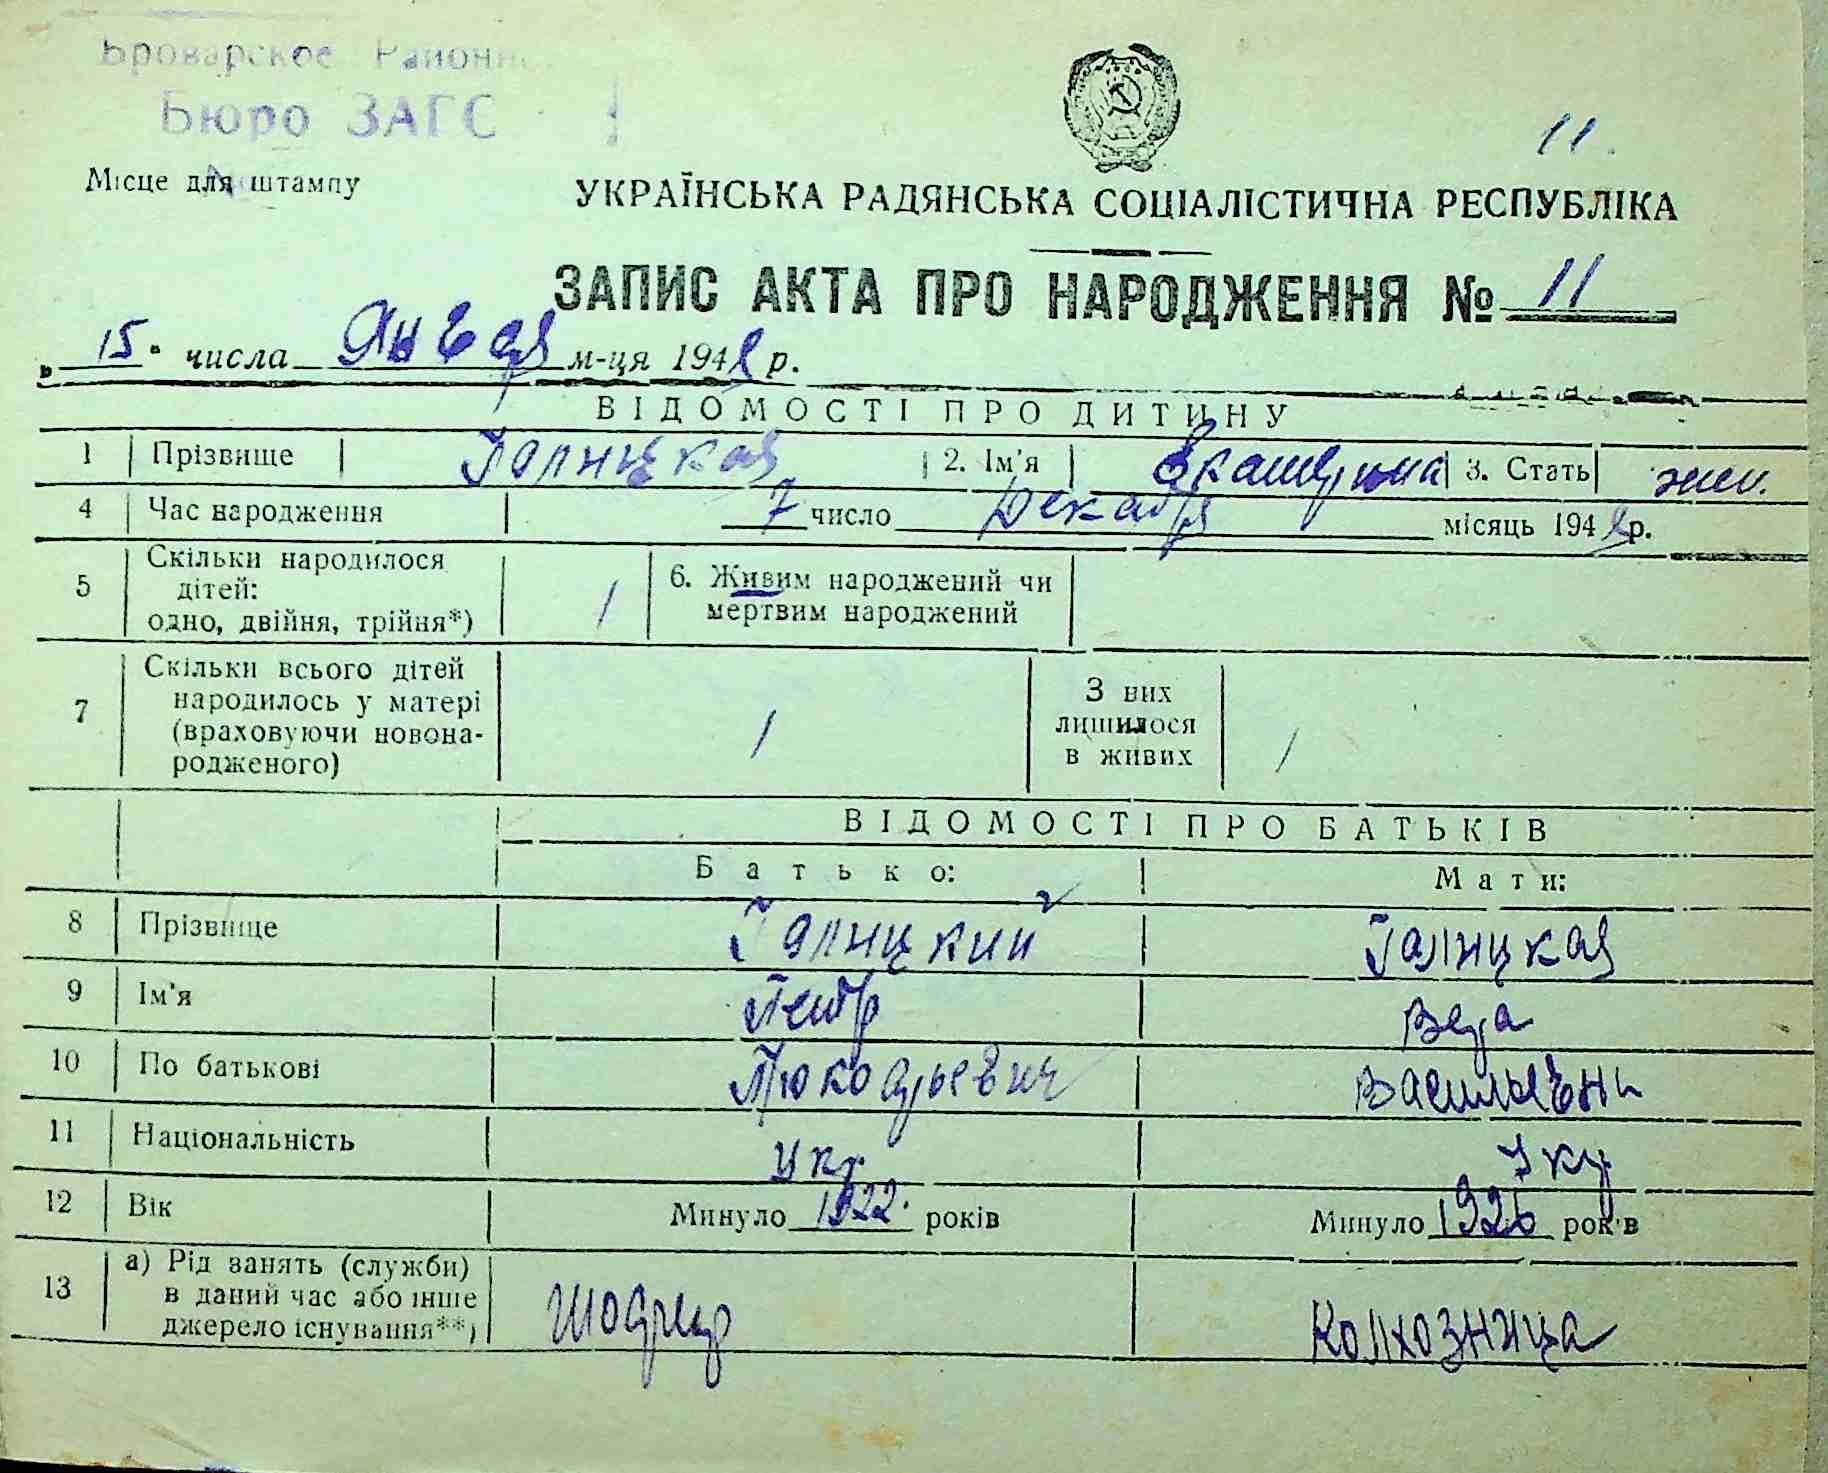 Броварское Районн
Бюро ЗАГС
11.
Місце для штампу
УКРАЇНСЬКА РАДЯНСЬКА СОЦІАЛІСТИЧНА РЕСПУБЛІКА
ЗАПИС АКТА ПРО НАРОДЖЕННЯ № 11
„15" числа Января м-ця 194 р.
ВІДОМОСТІ ПРО ДИТИНУ
1 Прізвище Галицкая 2. Ім'я Екатерина 3. Стать жен.
4 Час народження 7 число Декабря місяць 194 р.
5 Скільки народилося дітей: одно, двійня, трійня*) 1 6. Живим народжений чи мертвим народжений
7 Скільки всього дітей народилось у матері (враховуючи новонародженого) 1 З них лишилося в живих 1
ВІДОМОСТІ ПРО БАТЬКІВ
Батько: Мати:
8 Прізвище Галицкий Галицкая
9 Ім'я Петр Вера
10 По батькові
11 Національність укр укр
12 Вік Минуло 1922. років Минуло 1926 років
13 а) Рід занять (служби) в даний час або інше джерело існування**) шофер колхозница